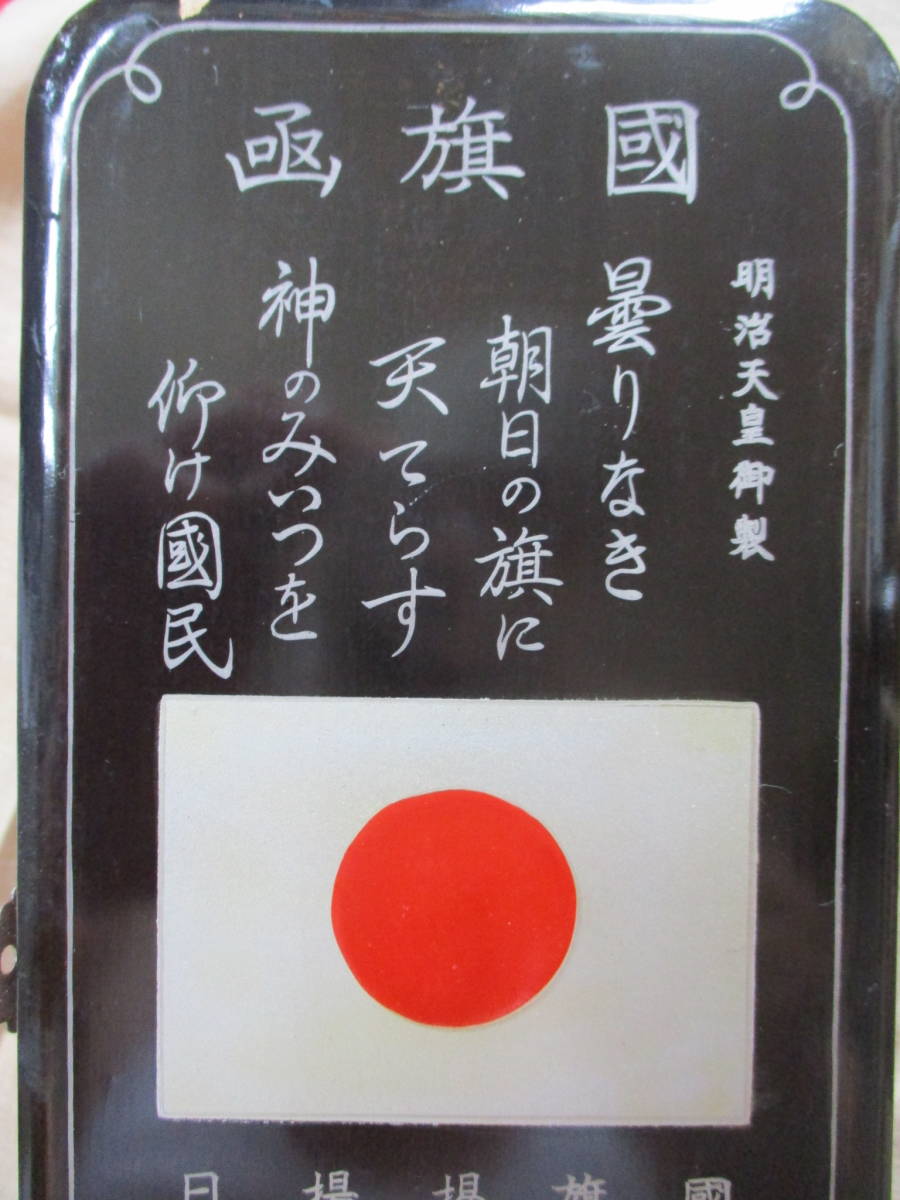 國旗凾
明治天皇御製
曇りなき
朝日の旗に
天てらす
神のみいつを
仰け國民
國旗掲揚日